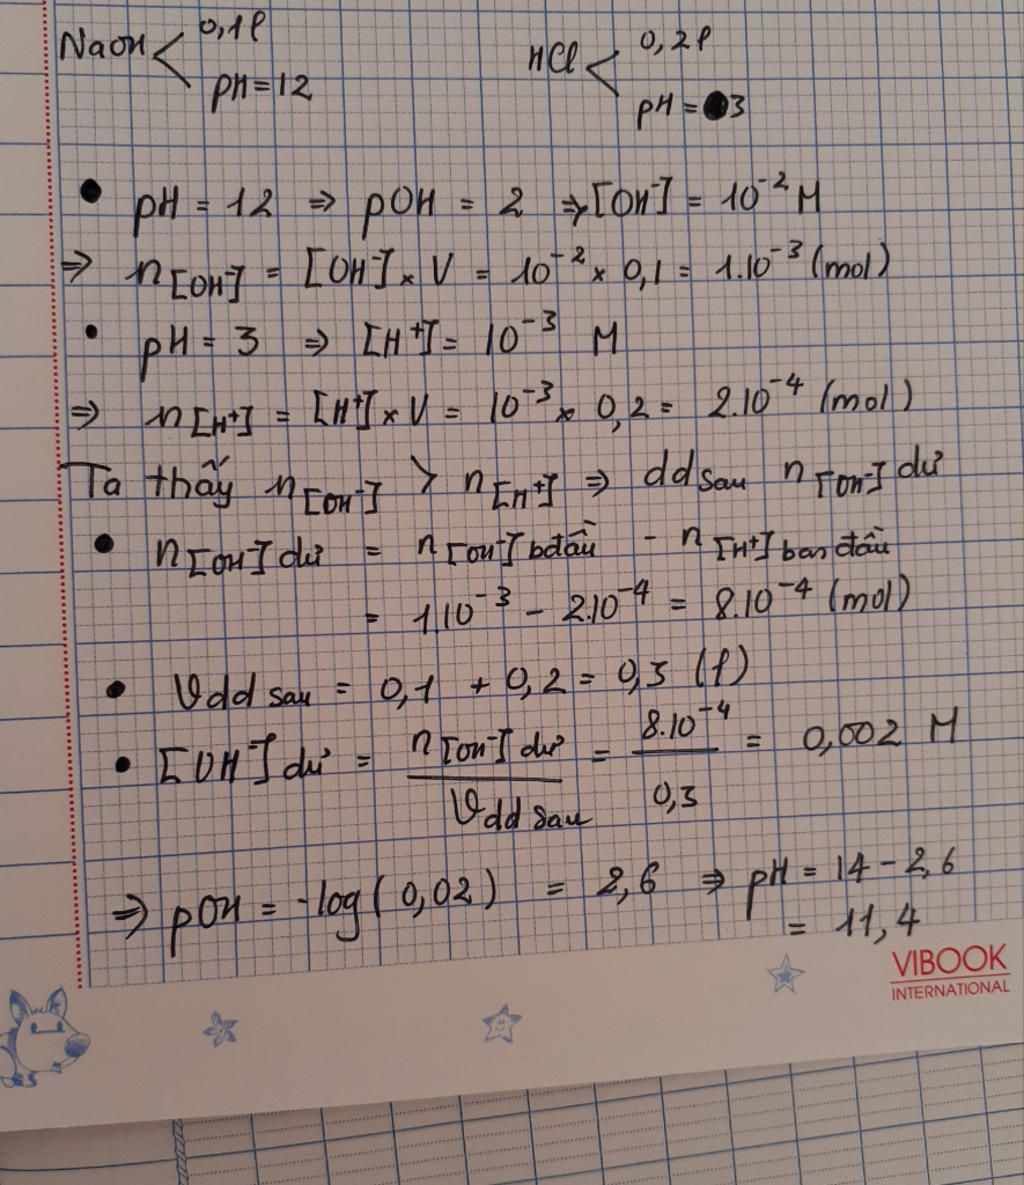 NaOH < 0,1l HCl < 0,2l
pH = 12 pH = 3
• pH = 12 ⇒ pOH = 2 ⇒ [OH⁻] = 10⁻² M
⇒ n[OH⁻] = [OH⁻] x V = 10⁻² x 0,1 = 1.10⁻³ (mol)
• pH = 3 ⇒ [H⁺] = 10⁻³ M
⇒ n[H⁺] = [H⁺] x V = 10⁻³ x 0,2 = 2.10⁻⁴ (mol)
Ta thấy n[OH⁻] > n[H⁺] ⇒ dd sau n[OH⁻] dư
• n[OH⁻] dư = n[OH⁻] bđầu - n[H⁺] ban đầu
= 1.10⁻³ - 2.10⁻⁴ = 8.10⁻⁴ (mol)
• Vdd sau = 0,1 + 0,2 = 0,3 (l)
• [OH⁻] dư = n[OH⁻] dư / Vdd sau = 8.10⁻⁴ / 0,3 = 0,002 M
⇒ pOH = -log(0,02) = 2,6 ⇒ pH = 14 - 2,6
= 11,4
VIBOOK
INTERNATIONAL